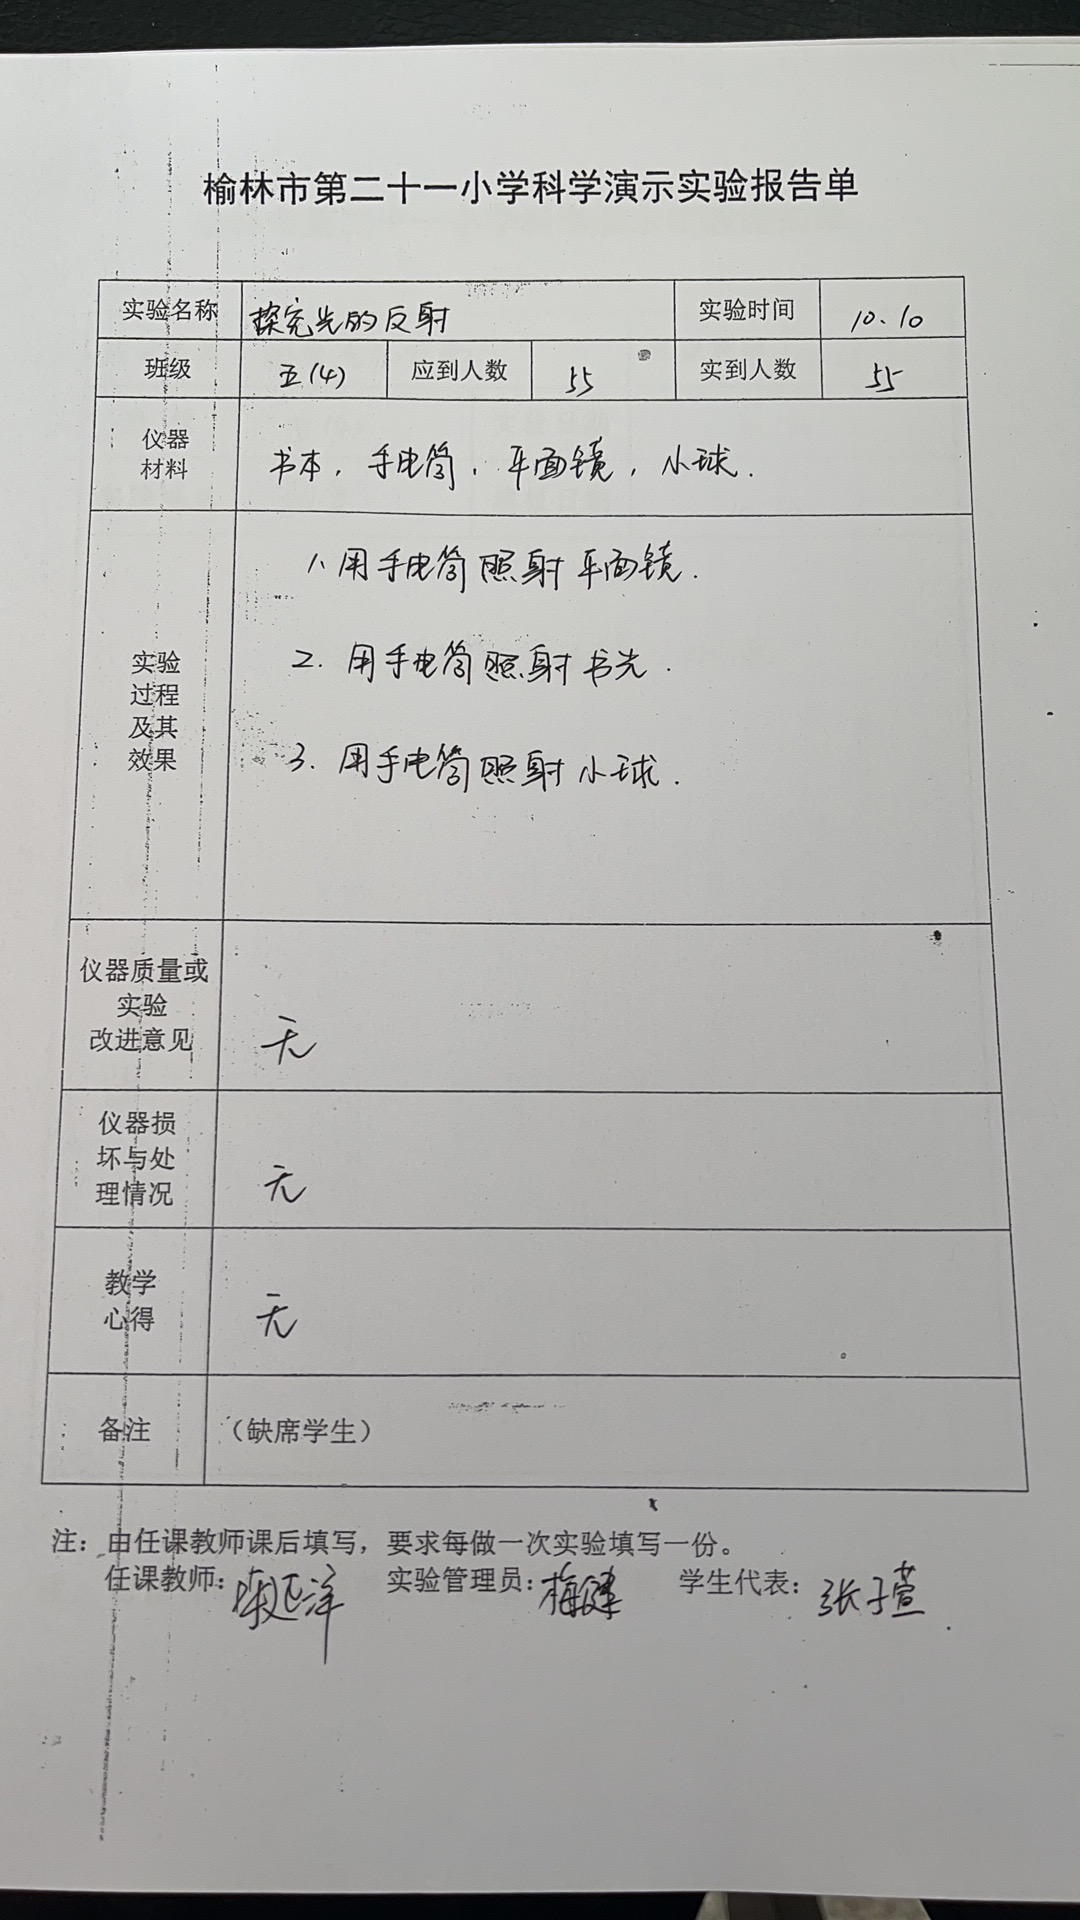 榆林市第二十一小学科学演示实验报告单
实验名称 探究光的反射 实验时间 10.10
班级 五(4) 应到人数 55 实到人数 55
仪器
材料
书本，手电筒，平面镜，小球.
实验
过程
及其
效果
1、用手电筒照射平面镜.
2.用手电筒照射书光.
3.用手电筒照射小球.
仪器质量或
实验
改进意见
无
仪器损
坏与处
理情况
无
教学
心得
无
备注 （缺席学生）
注：由任课教师课后填写，要求每做一次实验填写一份。
任课教师： 实验管理员： 学生代表：张子萱